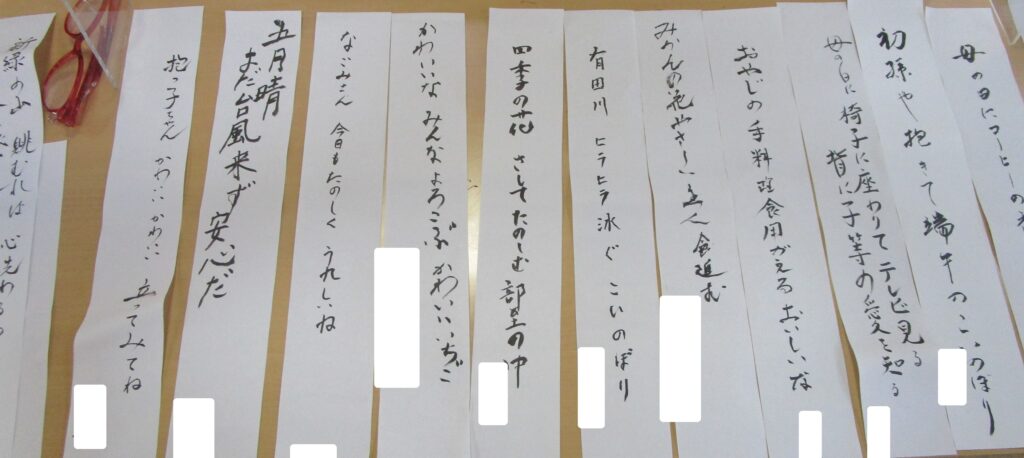 母の日にコーヒーの
初孫や抱きて端午のこいのぼり
母の日に椅子に座わりてテレビ見る
皆に子等の愛を知る
おやじの手料理食用がえるおいしいな
みかんの花やさしい
食進む
有田川 ヒラヒラ泳ぐ こいのぼり
四季の花 さしてたのしむ部屋の中
かわいいな みんなよろこぶ かわいいいちご
なごみさん 今日もたのしく うれしいね
五月晴
まだ台風来ず安心だ
抱っ子ちゃん かわいいかわいい 立ってみてね
新緑の山 眺むれば 心洗わるる